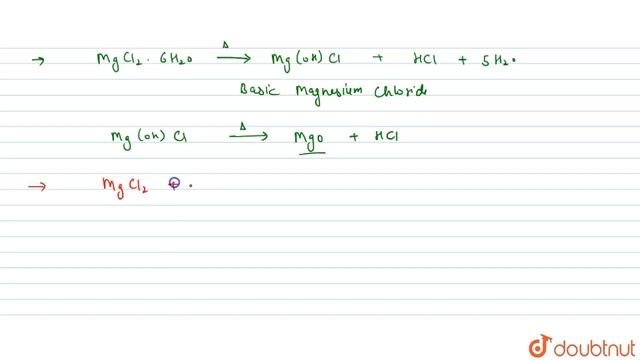 → MgCl2 · 6H2O —Δ→ Mg(OH)Cl + HCl + 5H2.
Basic Magnesium Chloride
Mg(OH)Cl —Δ→ MgO + HCl
→ MgCl2 + .
doubtnut